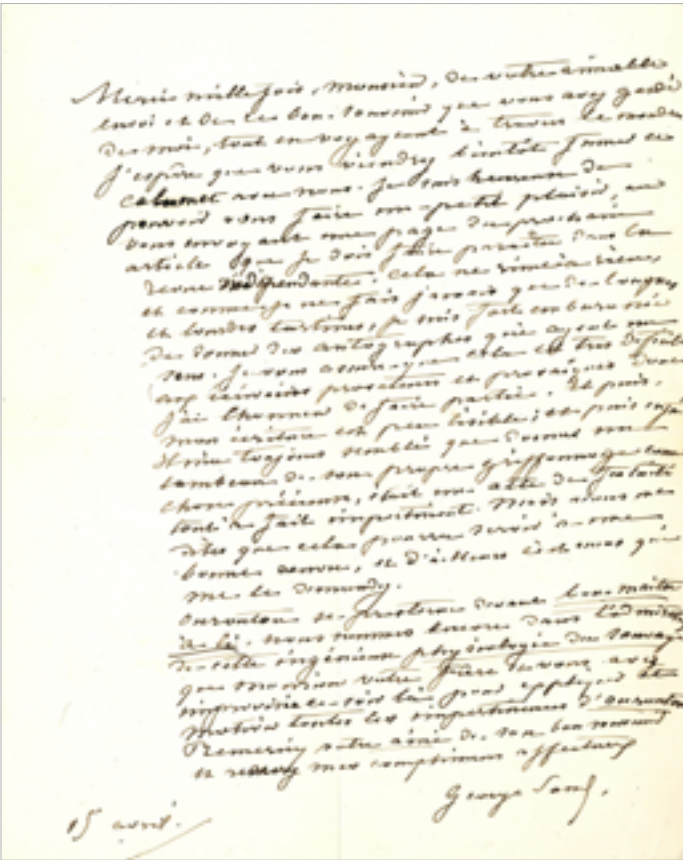 Merci mille fois, monsieur, de votre aimable
envoi et de ce bon souvenir que vous avez gardé
de moi, tout en voyageant à travers le monde
J'espère que vous viendrez bientôt fumer le
calumet avec nous. Je suis heureuse de
pouvoir vous faire un petit plaisir, en
vous envoyant une page du prochain
article que je dois faire paraître dans la
revue indépendante. Cela ne rimera rien
et comme je ne fais jamais que de longues
et lourdes tartines, je suis fort embarrassée
de donner des autographes qui ayent un
sens. Je vous assure que cela est très difficile
aux écrivains prosateurs et prosaïques dont
j'ai l'honneur de faire partie. Et puis,
mon écriture est peu lisible; et puis enfin
il m'a toujours semblé que donner un
lambeau de son propre griffonnage comme
chose précieuse, était un acte de fatuité
tout à fait impertinent. Mais vous me
dites que cela pourra servir à une
bonne œuvre, et d'ailleurs c'est vous qui
me le demandez.
se prosterne devant
nous sommes encore dans l'admiration
de cette ingénieuse physiologie du
que monsieur votre frère
improvisée ce soir là pour
toutes les impertinences
Remerciez votre de son bon souvenir
et recevez mes compliments affectueux
George Sand.
15 avril.